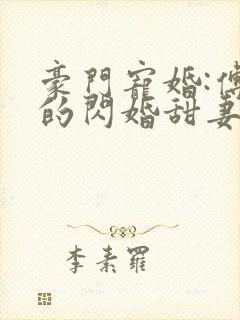 豪門寵婚:傅
的閃婚甜妻
李素羅